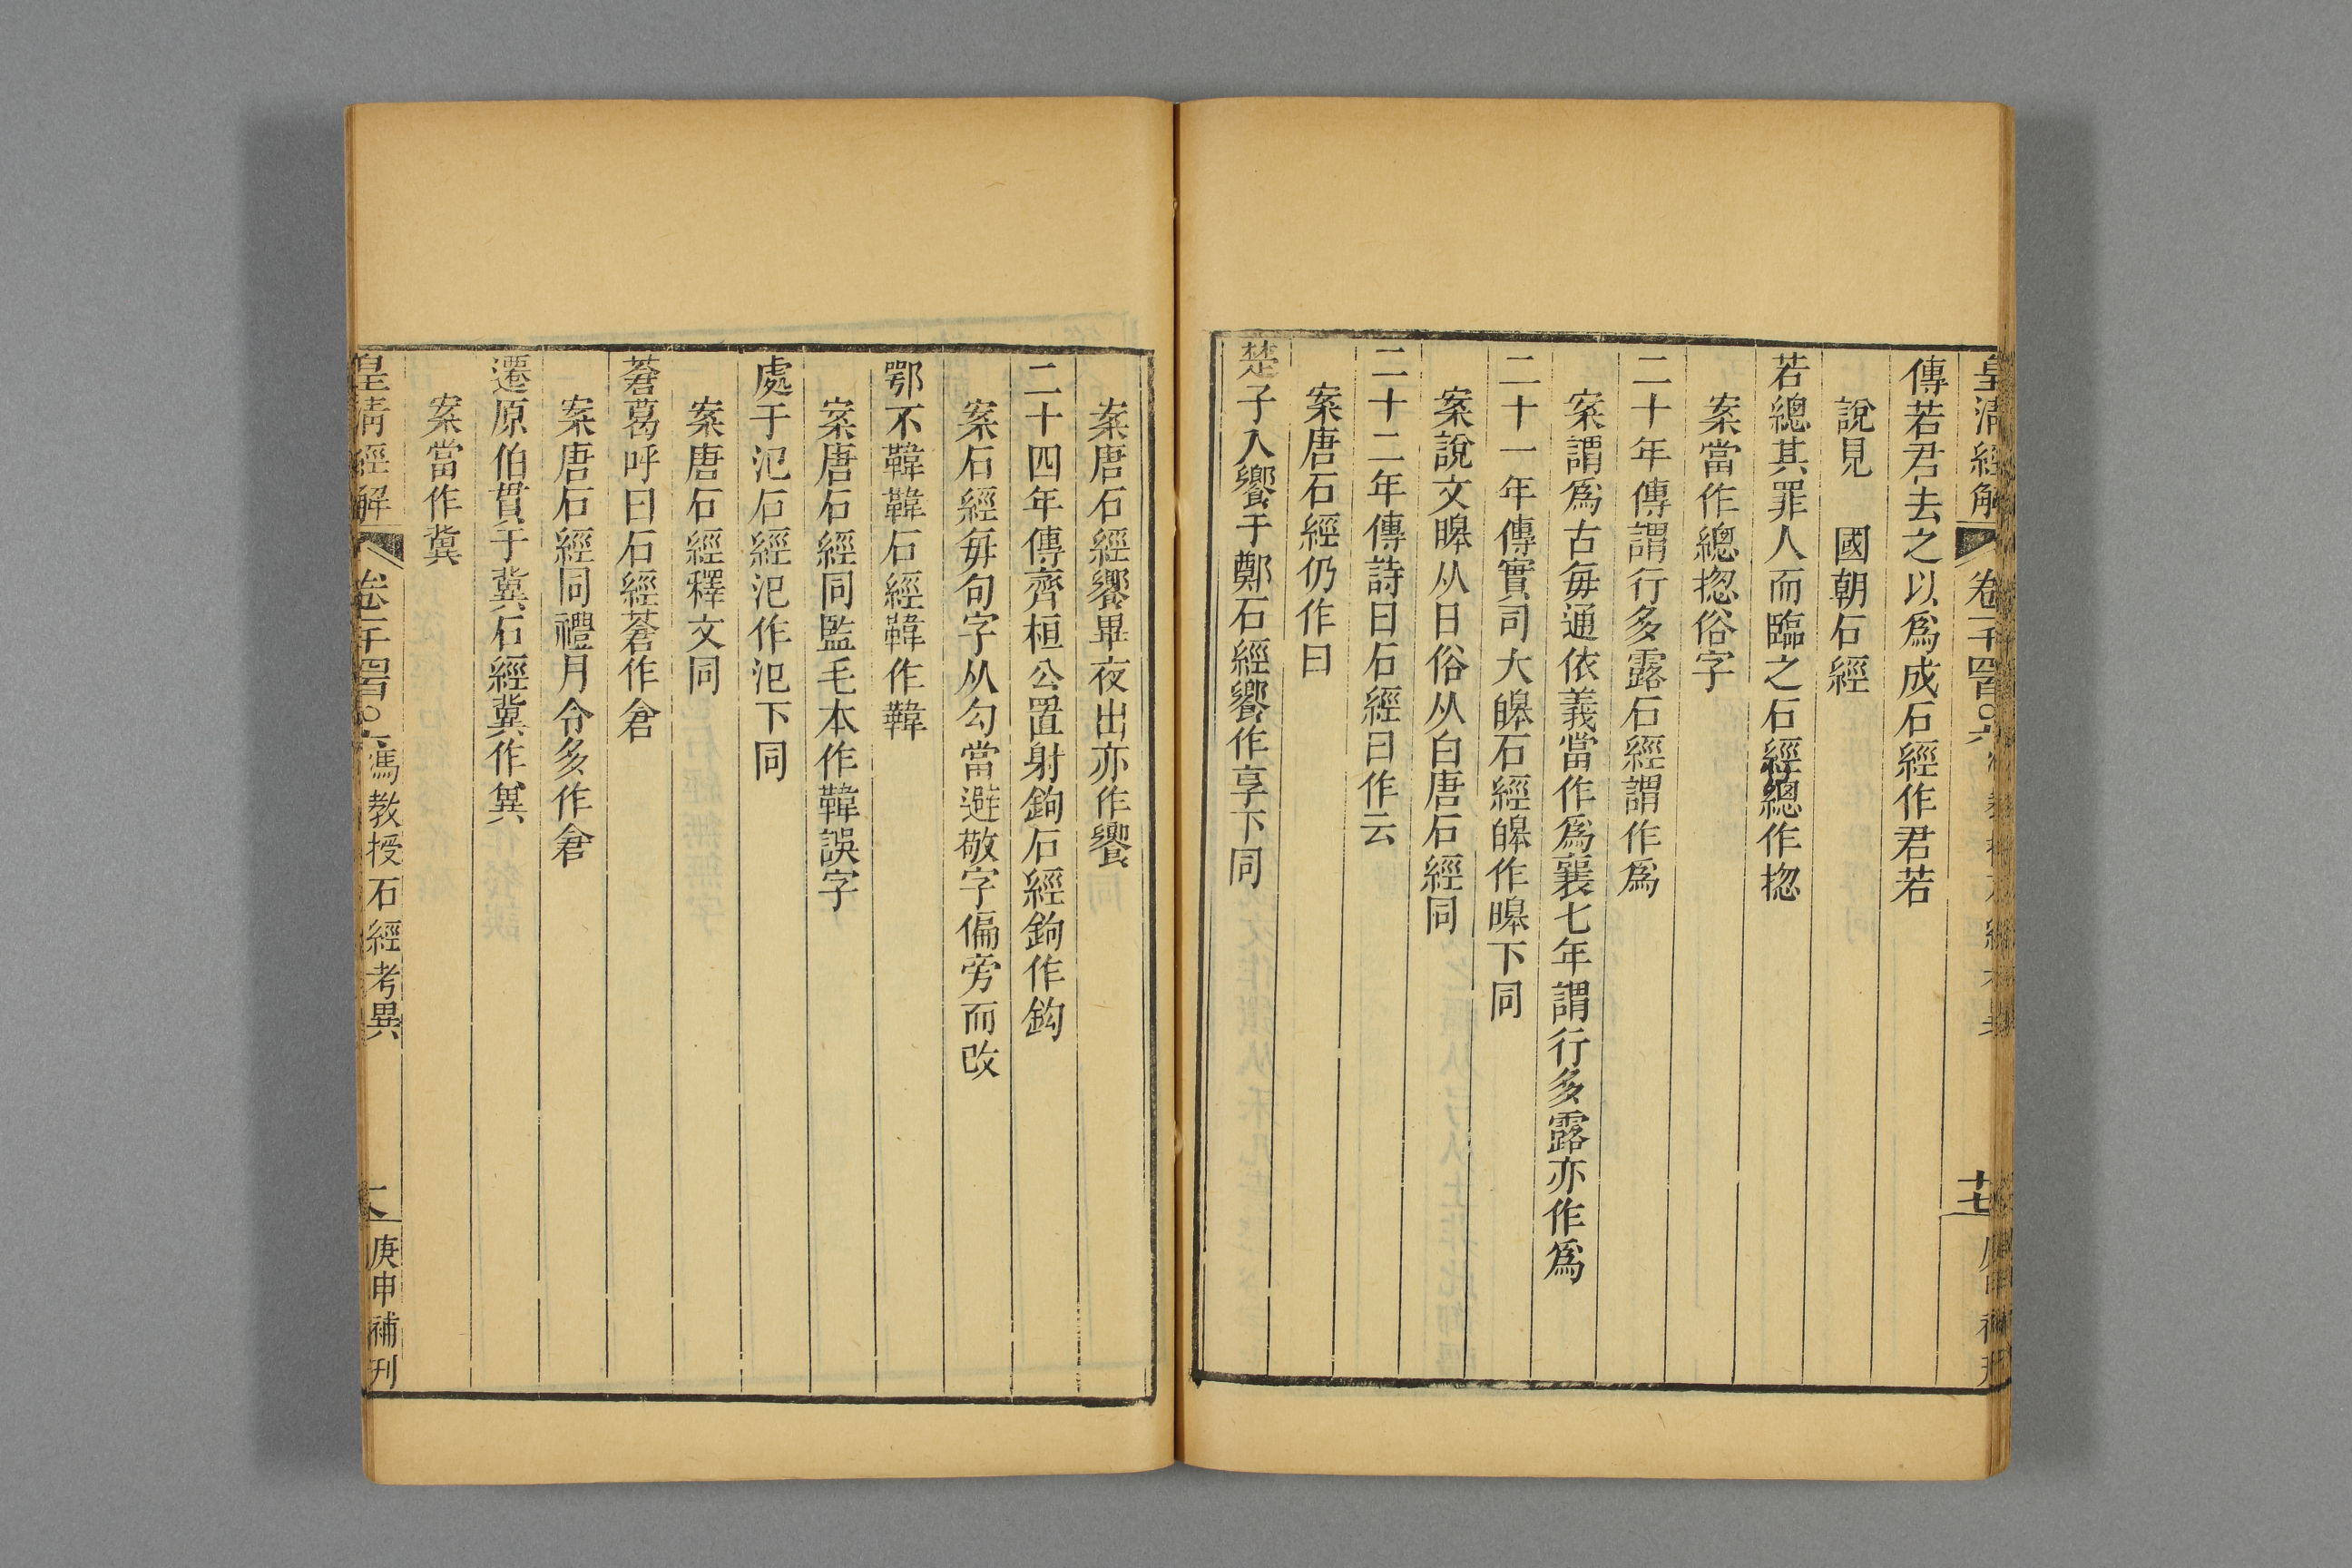 皇清經解 卷一千四百〇六
十七
傳若君去之以爲成石經作君若
說見　國朝石經
若總其罪人而臨之石經總作揔
案當作總揔俗字
二十年傳謂行多露石經謂作爲
案謂爲古每通依義當作爲襄七年謂行多露亦作爲
二十一年傳實司大皞石經皞作暤下同
案說文暤从日俗从白唐石經同
二十二年傳詩曰石經曰作云
案唐石經仍作曰
楚子入饗于鄭石經饗作享下同
案唐石經饗畢夜出亦作饗
二十四年傳齊桓公置射鉤石經鉤作鈎
案石經每句字从勾當避敬字偏旁而改
鄂不韡韡石經韡作韡
案唐石經同監毛本作韡誤字
處于氾石經氾作汜下同
案唐石經釋文同
蒼葛呼曰石經蒼作倉
案唐石經同禮月令多作倉
遷原伯貫于冀石經冀作兾
案當作冀
皇清經解 卷一千四百〇六 馮教授石經考異
庚申補刊